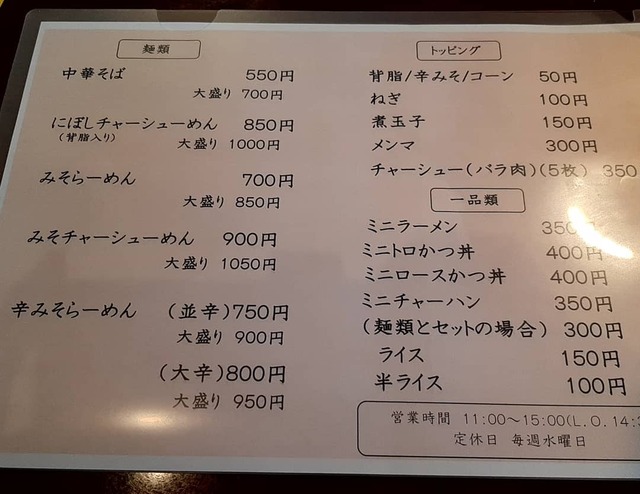 麺類
中華そば 550円
大盛り 700円
にぼしチャーシューめん 850円
(背脂入り) 大盛り 1000円
みそらーめん 700円
大盛り 850円
みそチャーシューめん 900円
大盛り 1050円
辛みそらーめん (並辛)750円
大盛り 900円
(大辛)800円
大盛り 950円
トッピング
背脂/辛みそ/コーン 50円
ねぎ 100円
煮玉子 150円
メンマ 300円
チャーシュー(バラ肉)(5枚) 350
一品類
ミニラーメン 350円
ミニトロかつ丼 400円
ミニロースかつ丼 400円
ミニチャーハン 350円
(麺類とセットの場合) 300円
ライス 150円
半ライス 100円
営業時間 11:00～15:00(L.O.14:3
定休日 毎週水曜日